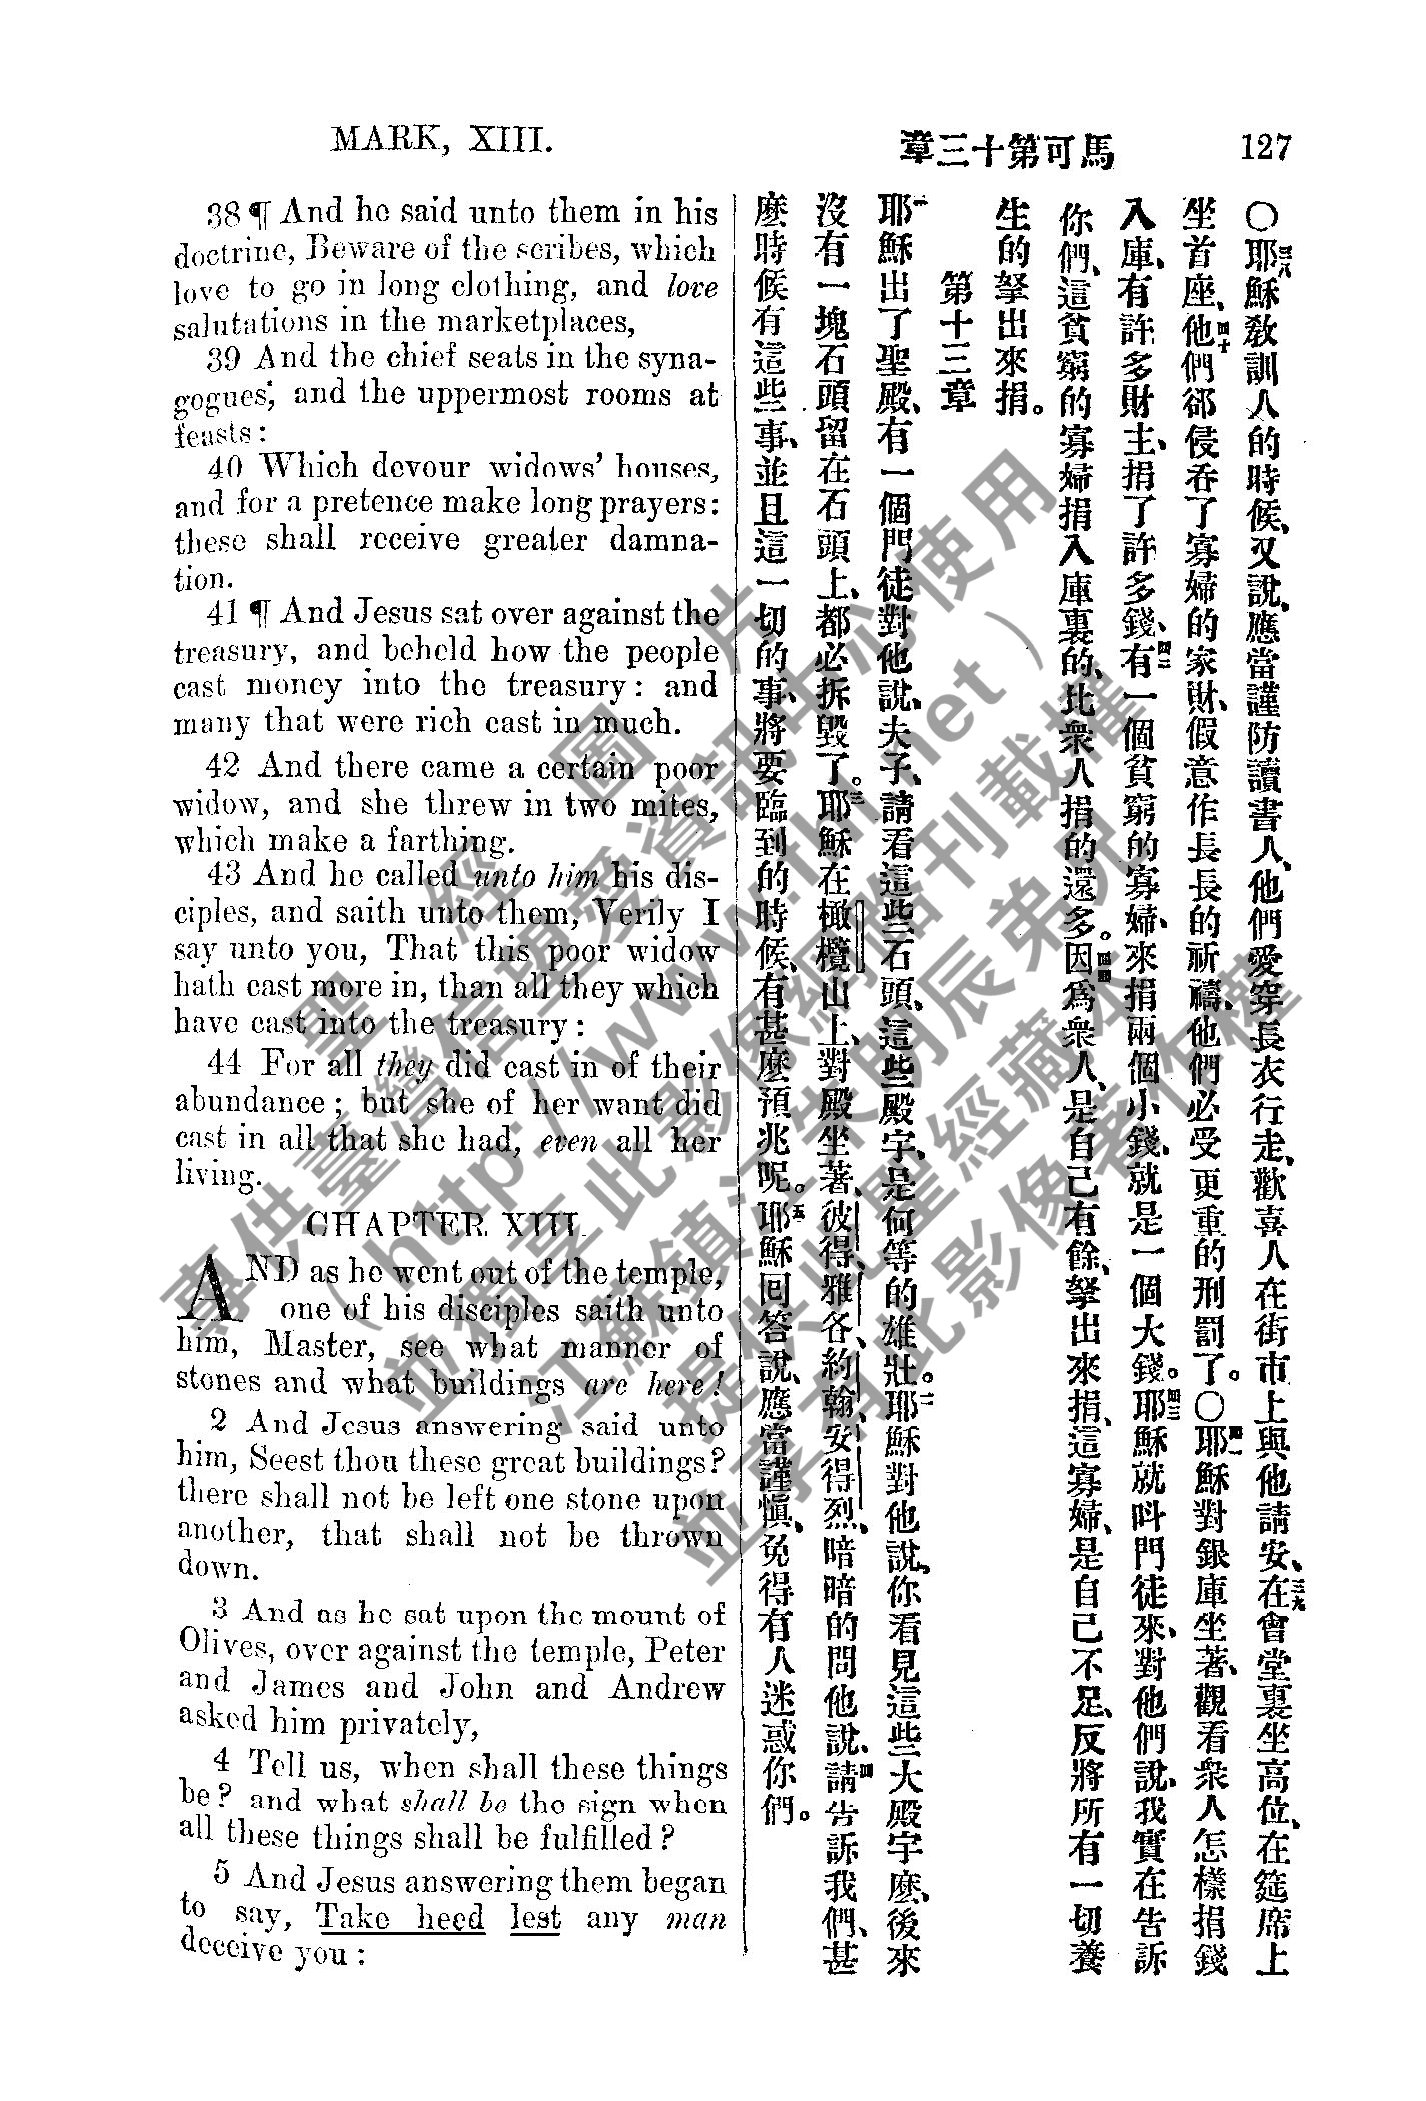 MARK, XIII.
章三十第可馬
127
38 ¶ And he said unto them in his
doctrine, Beware of the scribes, which
love to go in long clothing, and love
salutations in the marketplaces,
39 And the chief seats in the syna-
gogues, and the uppermost rooms at
feasts:
40 Which devour widows' houses,
and for a pretence make long prayers:
these shall receive greater damna-
tion.
41 ¶ And Jesus sat over against the
treasury, and beheld how the people
cast money into the treasury: and
many that were rich cast in much.
42 And there came a certain poor
widow, and she threw in two mites,
which make a farthing.
43 And he called unto him his dis-
ciples, and saith unto them, Verily I
say unto you, That this poor widow
hath cast more in, than all they which
have cast into the treasury:
44 For all they did cast in of their
abundance; but she of her want did
cast in all that she had, even all her
living.
CHAPTER XIII.
AND as he went out of the temple,
one of his disciples saith unto
him, Master, see what manner of
stones and what buildings are here!
2 And Jesus answering said unto
him, Seest thou these great buildings?
there shall not be left one stone upon
another, that shall not be thrown
down.
3 And as he sat upon the mount of
Olives, over against the temple, Peter
and James and John and Andrew
asked him privately,
4 Tell us, when shall these things
be? and what shall be the sign when
all these things shall be fulfilled?
5 And Jesus answering them began
to say, Take heed lest any man
deceive you:
〇三八耶穌敎訓人的時候、又說、應當謹防讀書人、他們愛穿長衣行走、歡喜人在街市上與他請安、三九在會堂裏坐高位、在筵席上
坐首座、四十他們卻侵吞了寡婦的家財、假意作長長的祈禱、他們必受更重的刑罰了。〇四一耶穌對銀庫坐著、觀看衆人怎樣捐錢
入庫、有許多財主、捐了許多錢、四二有一個貧窮的寡婦、來捐兩個小錢、就是一個大錢。四三耶穌就呌門徒來、對他們說、我實在告訴
你們、這貧窮的寡婦捐入庫裏的、比衆人捐的還多。四四因爲衆人、是自己有餘、拏出來捐、這寡婦、是自己不足、反將所有一切養
生的拏出來捐。
第十三章
一耶穌出了聖殿、有一個門徒對他說、夫子、請看這些石頭、這些殿宇、是何等的雄壯。二耶穌對他說、你看見這些大殿宇麼、後來
沒有一塊石頭留在石頭上、都必拆毀了。三耶穌在橄欖山上、對殿坐著、彼得、雅各、約翰、安得烈、暗暗的問他說、四請告訴我們、甚
麼時候有這些事、並且這一切的事、將要臨到的時候、有甚麼預兆呢。五耶穌回答說、應當謹愼、免得有人迷惑你們。
專供臺灣信望愛資訊中心使用
( http://www.fhl.net )